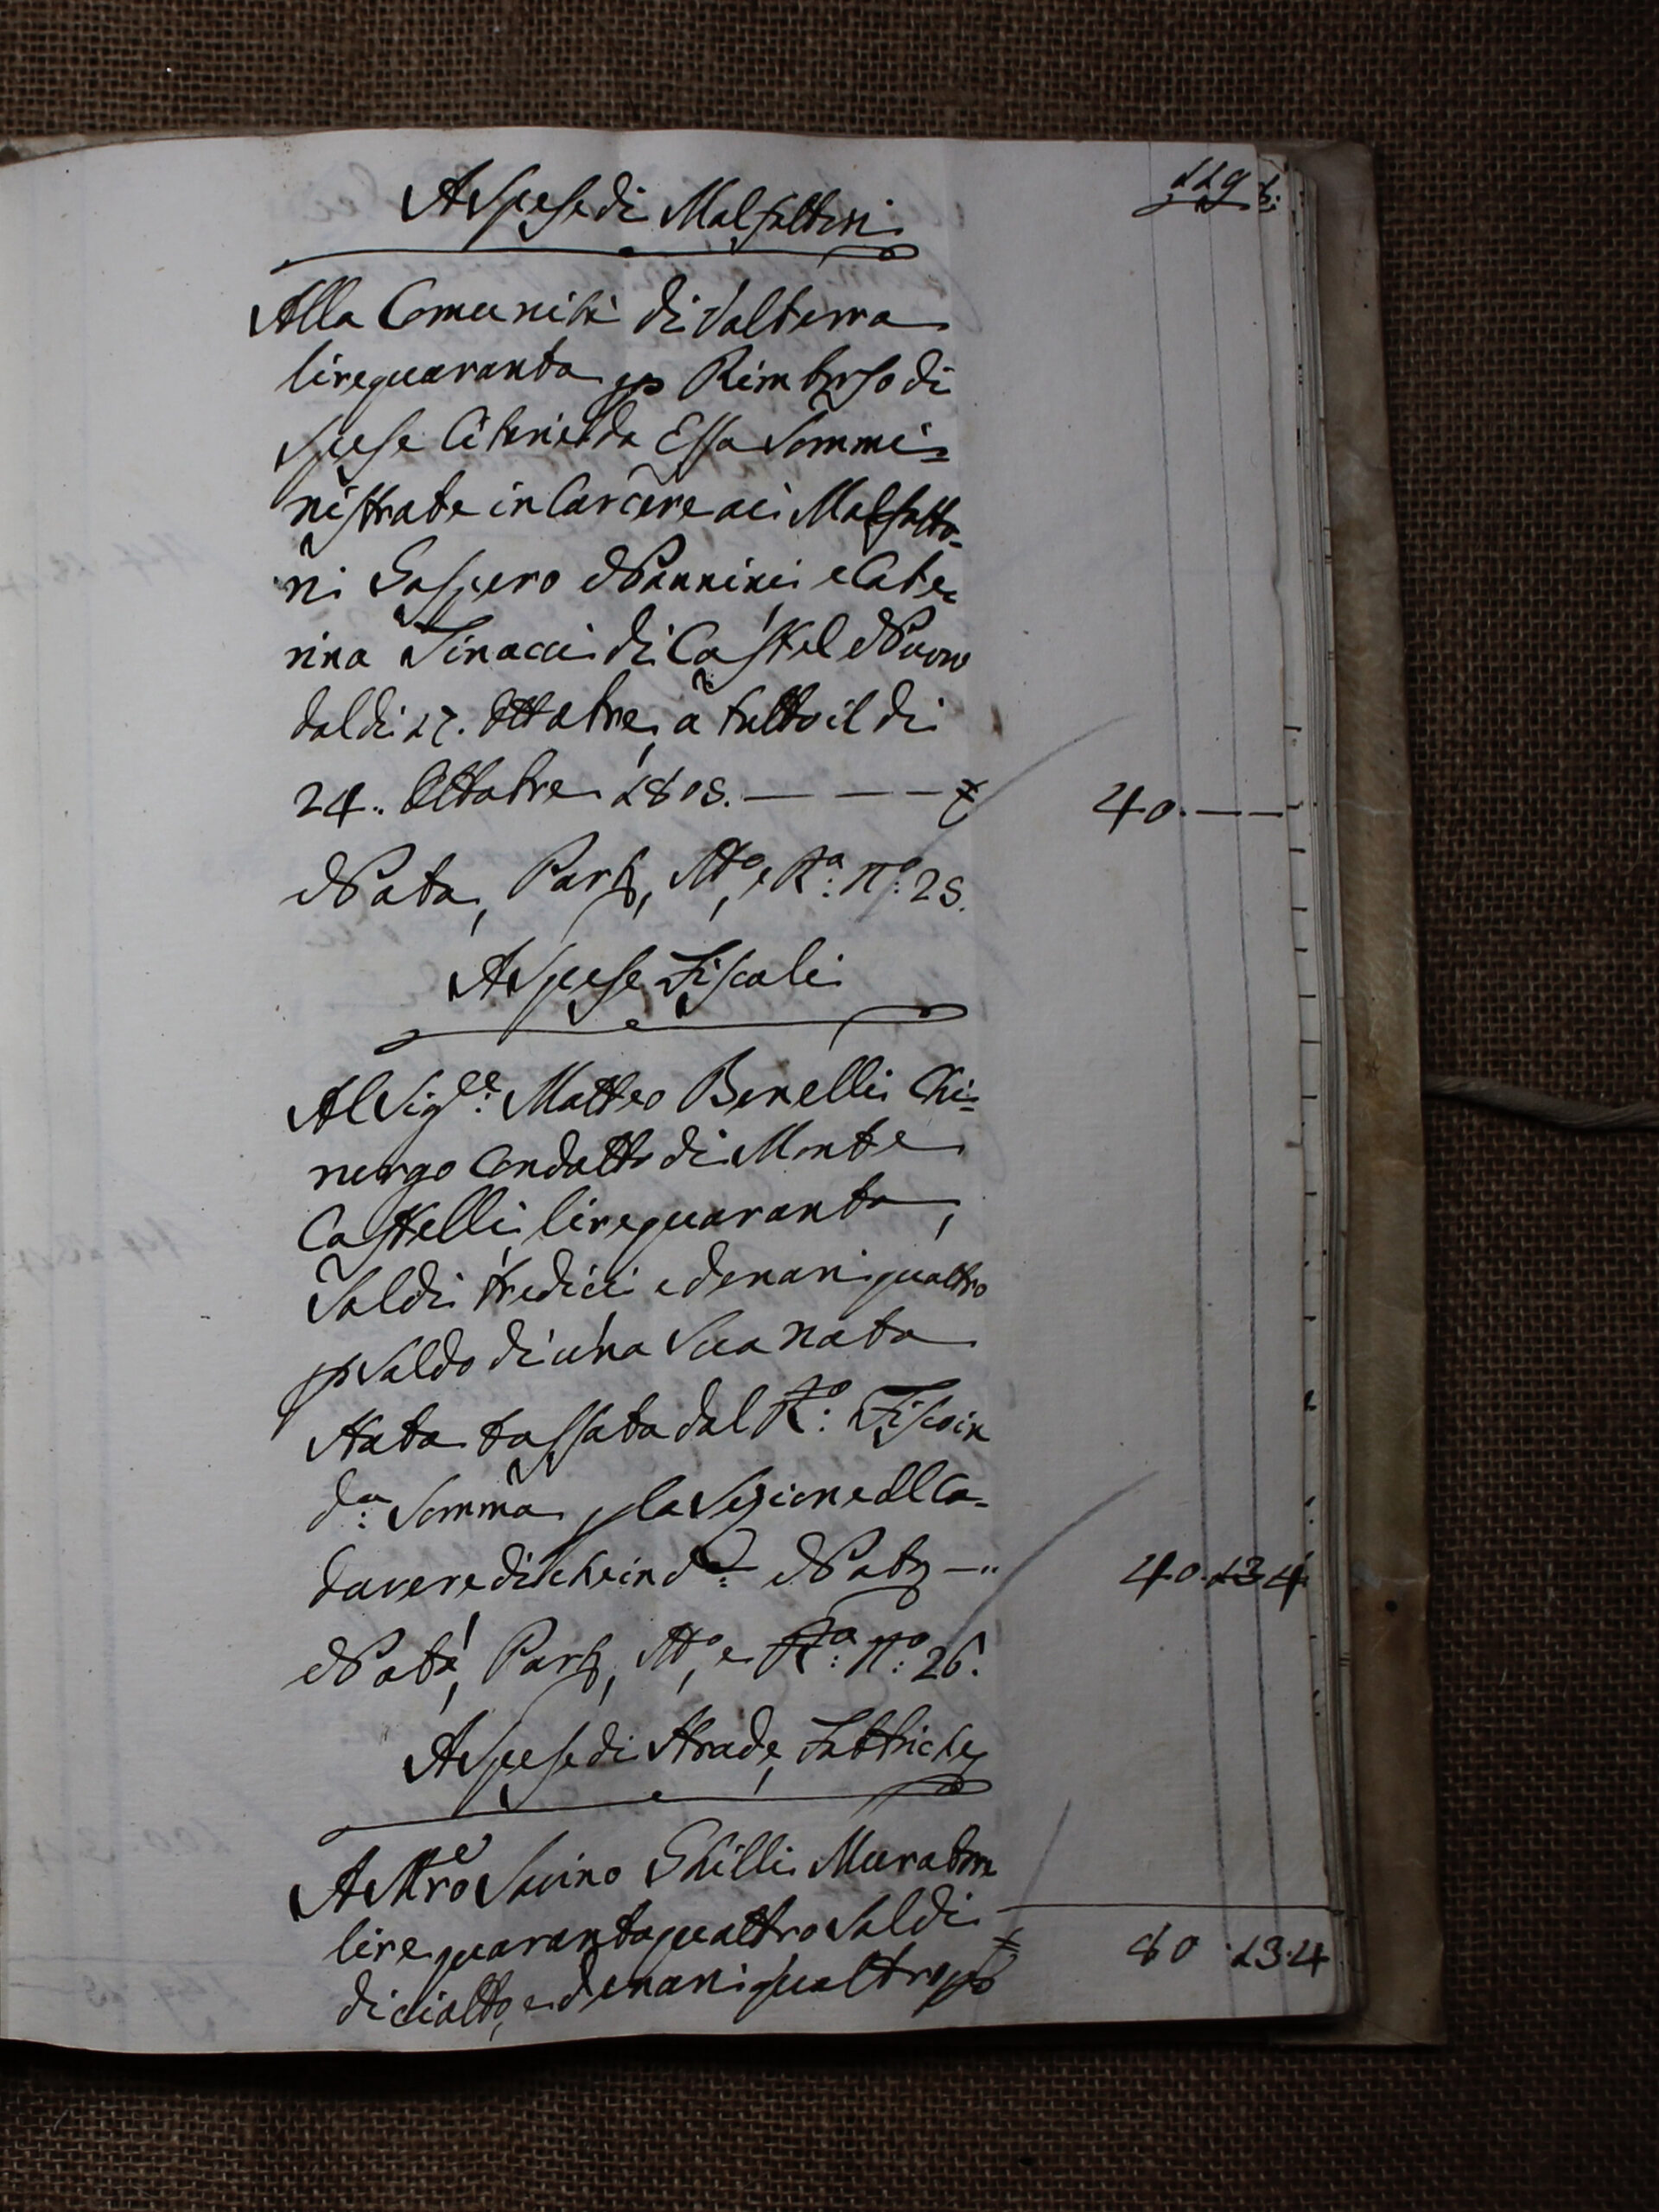 119
A Spese di Malfattori
Alla Comunità di Volterra
lire quaranta p Rimborso di
Spese Cibarie da Essa Sommi=
nistrate in Carcere ai Malfatto=
ri Gaspero Nannini e Cate=
rina Tinacci di Castel Nuovo
dal dì 17. Ottobre, a tutto il dì
24. Ottobre 1808. — — — £ 40. — —
Nota, Part, Mto, e Ra: No: 25.
A Spese Fiscali
Al Sigre: Matteo Benelli Chi=
rurgo Condotto di Monte
Castelli lire quaranta,
Soldi tredici e denari quattro
p Saldo di una Sua nota
Stata tassata dal Ro: Fisco in
da: Somma, p la Sezione del Ca=
davere di che in da: Nota — 40. 13. 4
Nota, Part, Mto, e Ra: No: 26.
A Spese di Strade, Fabbriche
A Mro Savino Ghilli Muratore
lire quarantaquattro Soldi
diciotto, e denari quattro p
80. 13. 4